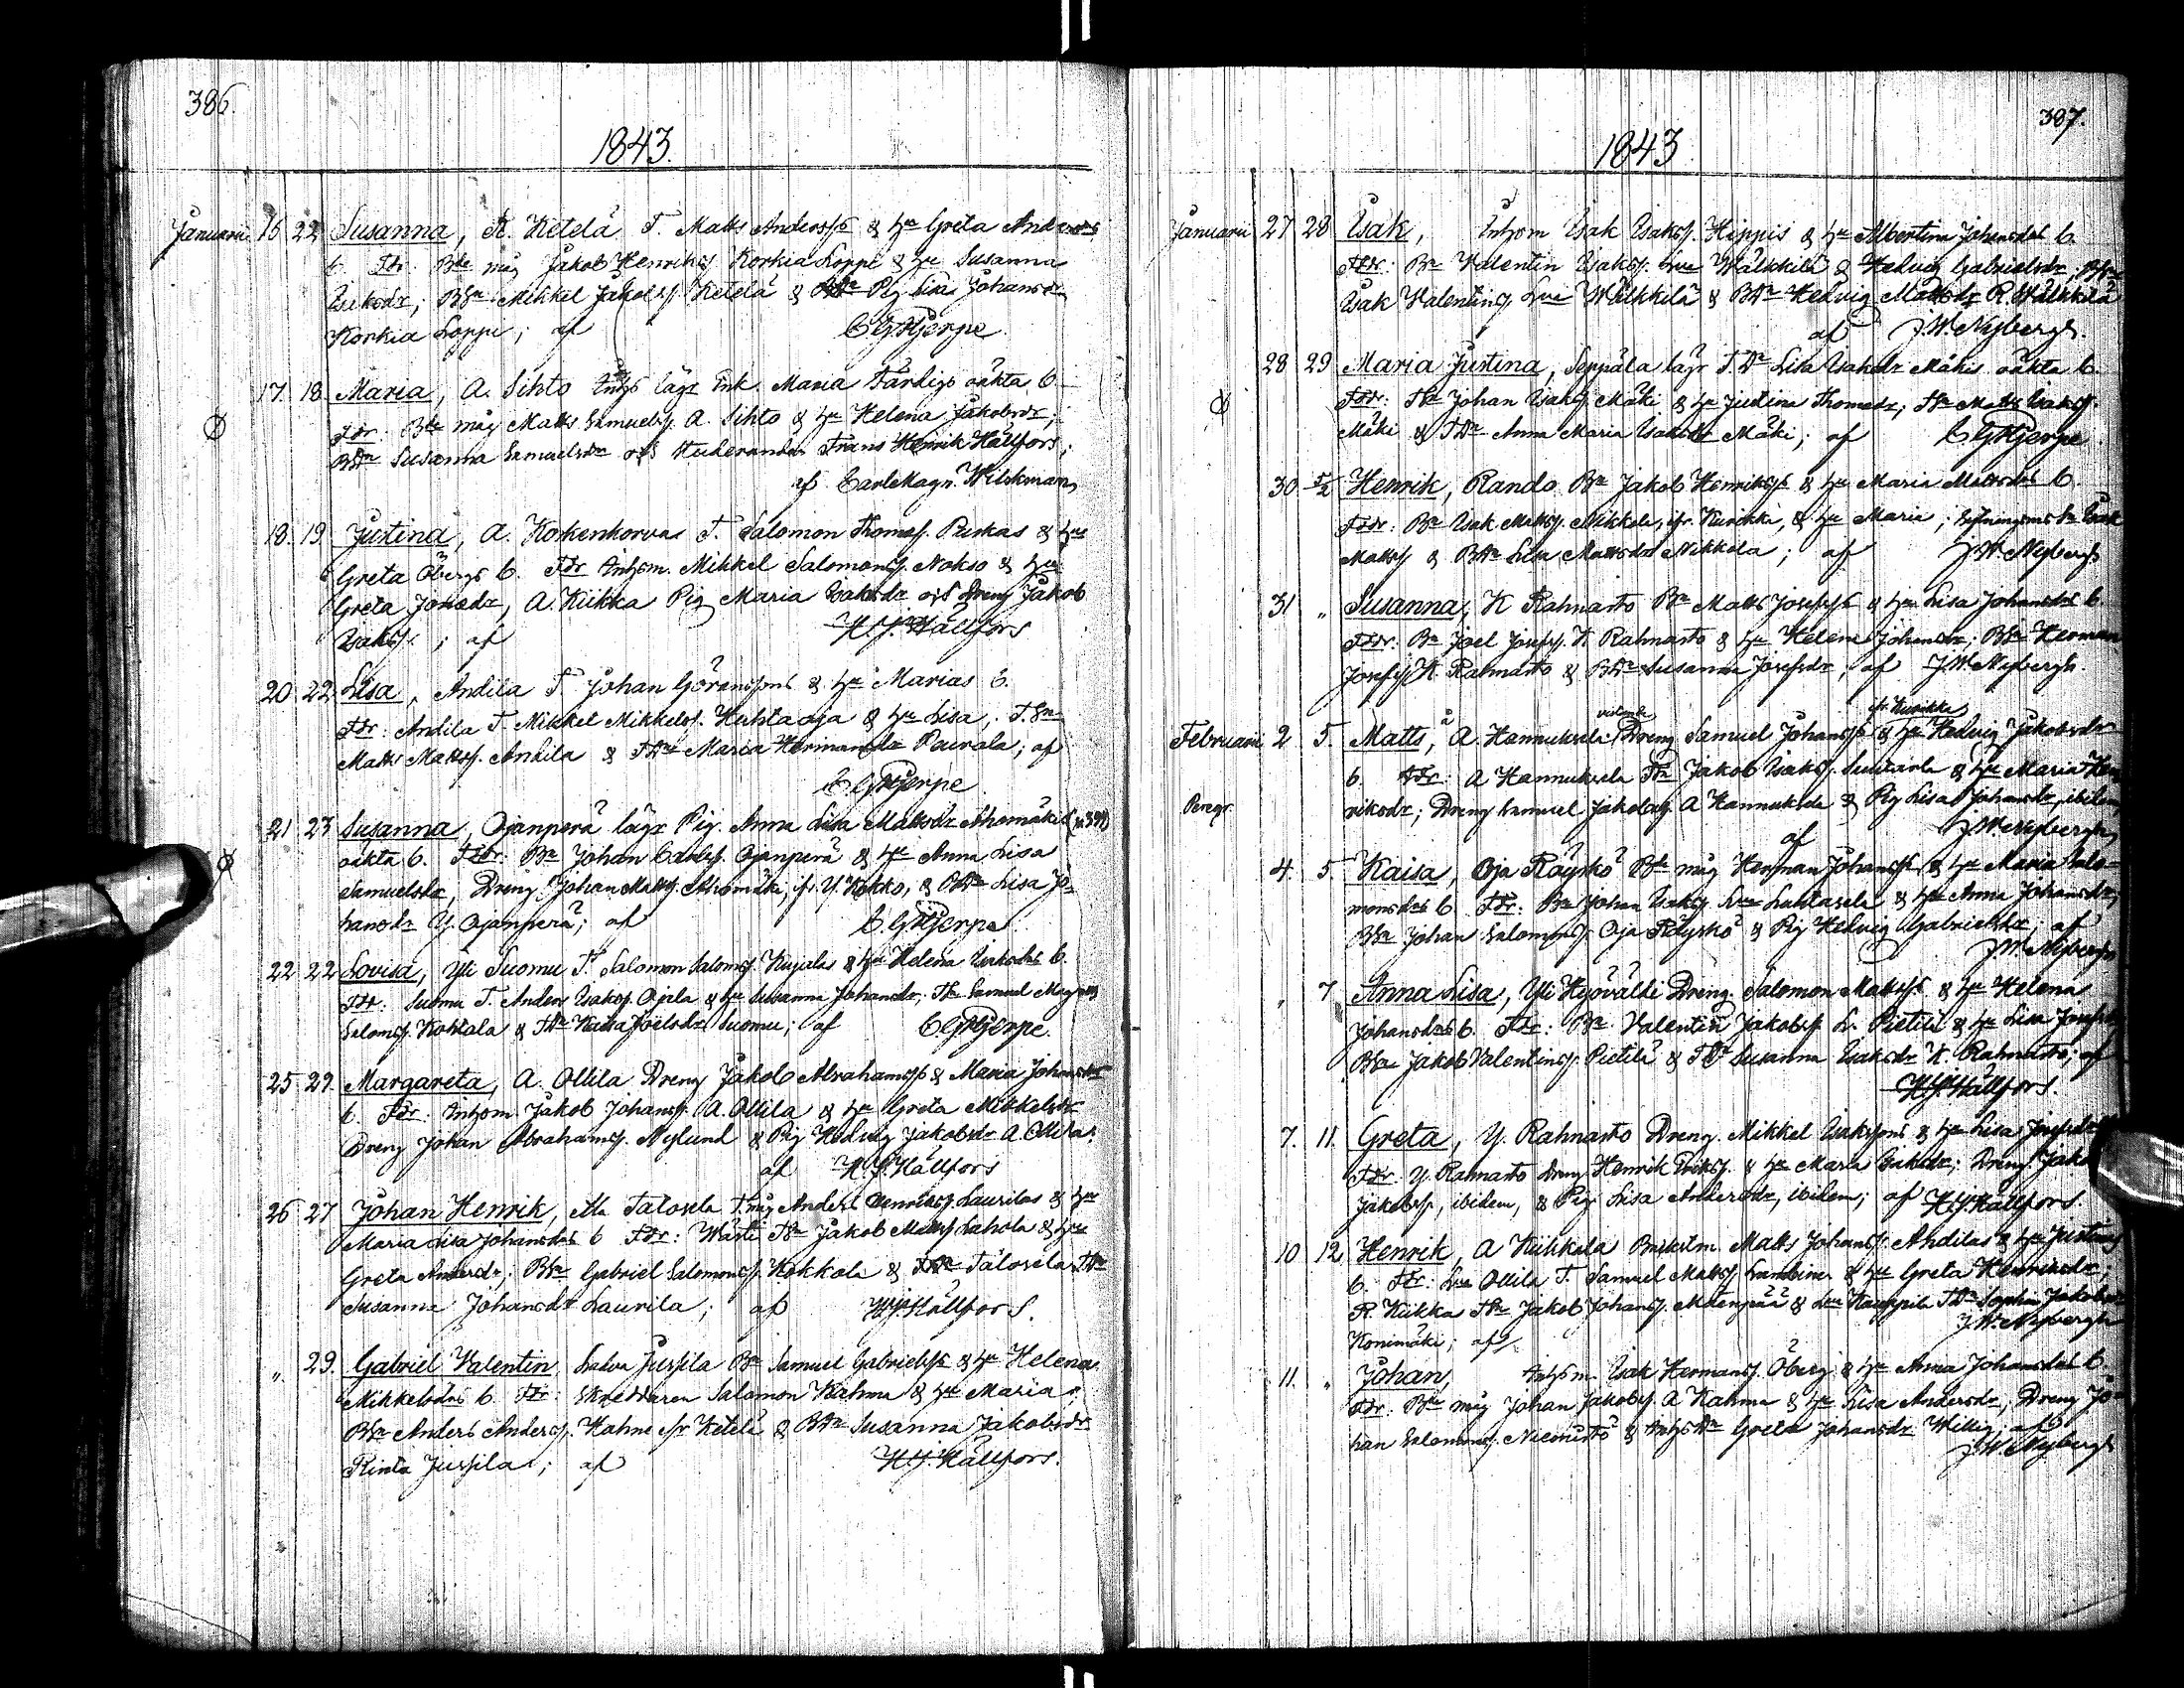 386.
1843.
Januarii 16 22 Susanna, R. Ketelä T. Matts Anderss & Hu Greta Anders
b. Fdr: Bde måg Jakob Henrikss. Korkia Loppi & Hu Susanna
Isaksdr; BSn Mikkel Jakobss. Ketelä & Pig Lisa Johansdr
Korkia Loppi; af C G Hjerpe
17. 18. Maria, A. Sihto Inhs lägr Enk. Maria Färdigs oäkta b.
Fdr: Bde måg Matts Samuelss. A. Sihto & Hu Helena Jakobsdr;
BDr Susanna Samuelsdr och Studeranden Frans Henrik Hällfors;
af Carl Magn. Wilskman
18. 19. Justina, A. Korkenkorvas T. Salomon Thomass. Puskas & Hus
Greta Öbergs b. Fdr Inhsm. Mikkel Salomonss. Nokso & Hu
Greta Jonædr, A. Kiikka Pig Maria Isaksdr och Dreng Jakob
Isakss.; af H. J. Hällfors
20. 22. Lisa, Andila T. Johan Göranssons & Hu Marias b.
Fdr: Andila T. Mikkel Mikkelss. Huhtaoja & Hu Lisa, T.Sn
Matts Mattss. Andila & TDr Maria Hermansdr Paurala; af
C G Hjerpe
21. 23 Susanna, Ojanperä lägr Pig. Anna Lisa Mattsdr Ahomäkis
oäkta b. Fdr: Bn Johan Carlss. Ojanperä & Hu Anna Lisa
Samuelsdr, Dreng Johan Mattss. Ahomäki, ifr. Y. Kokko, & BDr Lisa Jo-
hansdr Y. Ojanperä; af C. G Hjerpe
22 22 Lovisa, Yli Suomu T. Salomon Saloms. Kujalas & Hu Helena b.
Fdr: Suomu T. Anders Isakss. Ojila & Hu Susanna Johansdr; TSn Samuel
Saloms. Kohtala & TDr Kaisa Joelsdr Suomu; af C. G Hjerpe.
25 29. Margareta, A. Ollila Dreng Jakob Abrahamss & Maria Johansdrs
b. Fdr: Inhsm Jakob Johanss. A. Ollila & Hu Greta Mikkelsdr
Dreng Johan Abrahamss. Nylund & Pig Hedvig Jakobsdr A. Ollila
af H. J. Hällfors
26. 27 Johan Henrik, Ala Talosela T. måg Anders Henrikss. Laurilas & Hu
Maria Lisa Johansdrs b Fdr: Wästi TSn Jakob Mattss. Lahola & Hu
Greta Andersdr; BSn Gabriel Salomonss. Kokkola & Talosela TDr
Susanna Johansdr Laurila; af H J Hällfors.
" 29. Gabriel Valentin, Latva Jussila Bn Samuel Gabrielss & Hu Helena
Mikkelsdrs b. Fdr: Skreddaren Salomon Kahma & Hu Maria,
BSn Anders Anderss. Hahne ifr Ketelä & BDr Susanna Jakobsdr
Rinta Jussila; af H. J. Hällfors.
387.
1843
Januarii 27 28 Isak, Inhsm Isak Isakss. Hippis & Hu Albertina Johansdrs b.
Fdr: Bn Valentin Isakss. Lue Wälikkilä & Hedvig Gabrielsdr; BSn
Isak Valentins. Lue Wälikkilä & BDr Hedvig Mattsdr R. Wälikkilä
af J. W. Nybergh.
28 29 Maria Justina, Seppälä lägr T.Dr Lisa Isaksdr Mäkis oäkta b.
Fdr: TSn Johan Isakss. Mäki & Hu Justina Thomædr; TSn Matts Isakss.
Mäki & TDr Anna Maria Isaksdr Mäki; af C G Hjerpe.
30 5/2 Henrik, Rando Bn Jakob Henrikss & Hu Maria Mattsdrs b.
Fdr: Bn Isak Mattss. Nikkola, ifr. Kurikka, & Hu Maria; Isak
Mattss & BDr Lisa Mattsdr Nikkola; af J W. Nybergh
31 " Susanna, K Rahnasto Bn Matts Josefss & Hu Lisa Johansdrs b.
Fdr: Bn Joel Josefss. K. Rahnasto & Hu Helena Johansdr; BSn Herman
Josefss K. Rahnasto & BDr Susanna Josefsdr; af J. W. Nybergh.
ifr. Kurikka
Februarii 2 5. Matts, A. Hannuksela Dreng Samuel Johanss & Hu Hedvig Jakobsdr
b. Fdr: A Hannuksela TSn Jakob Isakss. & Hu Maria Hen-
Peregr. riksdr; Dreng Samuel Jakobss. A Hannuksela & Pig Lisa Johansdr, ibidem,
af J W Nybergh
4. 5. Kaisa, Oja Räyskö Bde måg Herman Johanss & Hu Maria Salo-
monsdrs b Fdr: Bn Johan Isakss. Luhtasela & Hu Anna Johansdr,
BSn Johan Salomonss. Oja Räyskö & Pig Hedvig Gabrielsdr; af
J. W. Nybergh
" 7 Anna Lisa, Yli Hyövälti Dreng. Salomon Mattss & Hu Helena
Johansdrs b. Fdr: Bn Valentin Jakobss. L. Pietilä & Hu Lisa
BSn Jakob Valentins. Pietilä & TDr Susanna Isaksdr K. Rahnasto; af
H. J. Hällfors.
7. 11. Greta, Y. Rahnasto Dreng. Mikkel Isakssons & Hu Lisa
Fdr. Y. Rahnasto Dreng Henrik Erikss. & Hu Maria Isaksdr; Dreng Jakob
Jakobss, ibidem, & Pig Lisa Andersdr, ibidem; af H. J. Hällfors.
10 12 Henrik, A Kiikkala Matts Johanss. Andilas & Hu Justinas
b. Fdr: Lue Ollila T. Samuel Mattss. & Hu Greta Henriksdr;
R Kiikka TSn Jakob Johanss. Mäenpää & Lue Kauppila TDr Sophia Jakobsdr
Konimäki; af J. W. Nybergh
11. " Johan, Inhsm. Isak Hermanss. Öberg & Hu Anna Johansdrs b.
Fdr: Bde måg Johan Jakobss. A Kahma & Hu Lisa Andersdr, Dreng Jo-
han Salomonss. Niemistö & InhsDr Greta Johansdr Willig; af
J. W. Nybergh